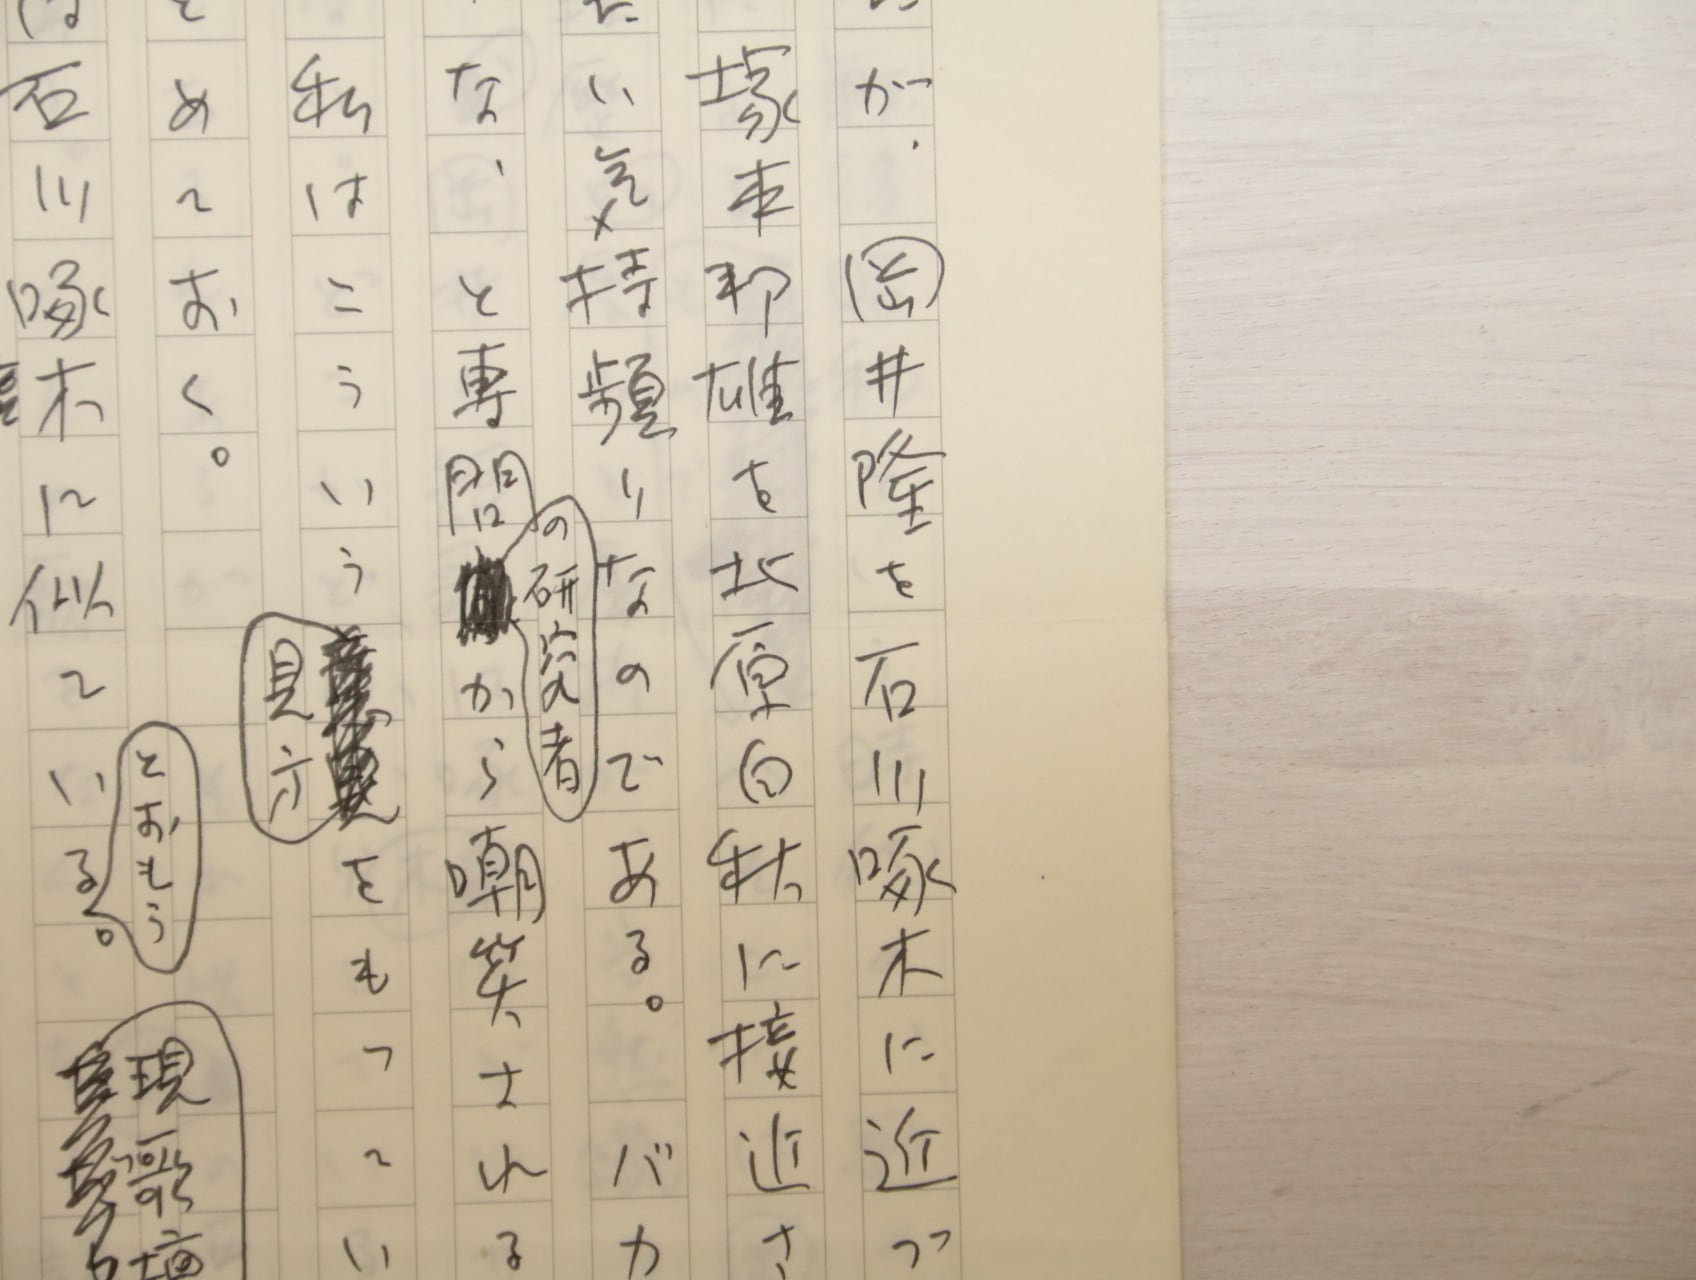 が、岡井隆を石川啄木に近づ
塚本邦雄を北原白秋に接近さ
たい気持頻りなのである。バカ
な、と専門の研究者から嘲笑される
私はこういう見方をもってい
とめておく。
は石川啄木に似ているとおもう。現歌壇